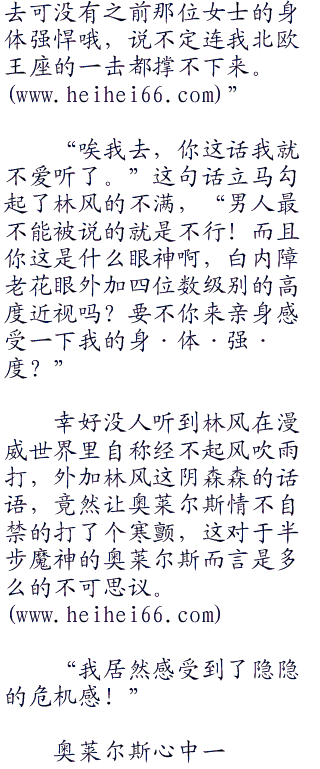 去可没有之前那位女士的身
体强悍哦，说不定连我北欧
王座的一击都撑不下来。
(www.heihei66.com)”
“唉我去，你这话我就
不爱听了。”这句话立马勾
起了林风的不满，“男人最
不能被说的就是不行！而且
你这是什么眼神啊，白内障
老花眼外加四位数级别的高
度近视吗？要不你来亲身感
受一下我的身·体·强·
度？”
幸好没人听到林风在漫
威世界里自称经不起风吹雨
打，外加林风这阴森森的话
语，竟然让奥莱尔斯情不自
禁的打了个寒颤，这对于半
步魔神的奥莱尔斯而言是多
么的不可思议。
(www.heihei66.com)
“我居然感受到了隐隐
的危机感！”
奥莱尔斯心中一